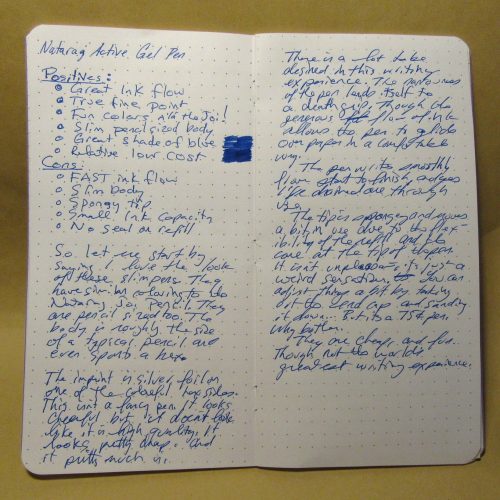 Nataraj Active Gel Pen
Positives:
Great Ink flow
True fine point
Fun colors a'la the Joi!
Slim pencil sized body
Great shade of blue
Relative low cost
Cons:
FAST ink flow
Slim body
Spongy tip
Small ink capacity
No seal on refill
So let me start by
saying I love the look
of these slim pens. They
have similar coloring to the
Nataraj Joi pencil. They
are pencil sized too. The
body is roughly the size
of a typical pencil and
even sports a hex
The imprint is silver foil on
one of the colorful hex sides.
This isnt a fancy pen. It looks
cheerful but it doesnt look
like it is high quality. It
looks pretty cheap. And
it pretty much is.
There is a lot to be
desired in this writing
experience. The narrowness
of the pen lends itself to
a death grip, though the
generous flow of ink
allows the pen to glide
over paper in a comfortable
way.
The pen write smoothly
from start to finish, pages
I've drained one through
use.
The tip is spongey and moves
a bit in use due to the flex-
ibility of the refill and the
cone at the tip of the pen.
It isn't unpleasant- its just a
weird sensation. You can
adjust things a bit by taking
it to end cap and sanding
it down. But its a 75¢ pen.
Why bother.
They are cheap and fun.
Though not the worlds
greatest writing experience.